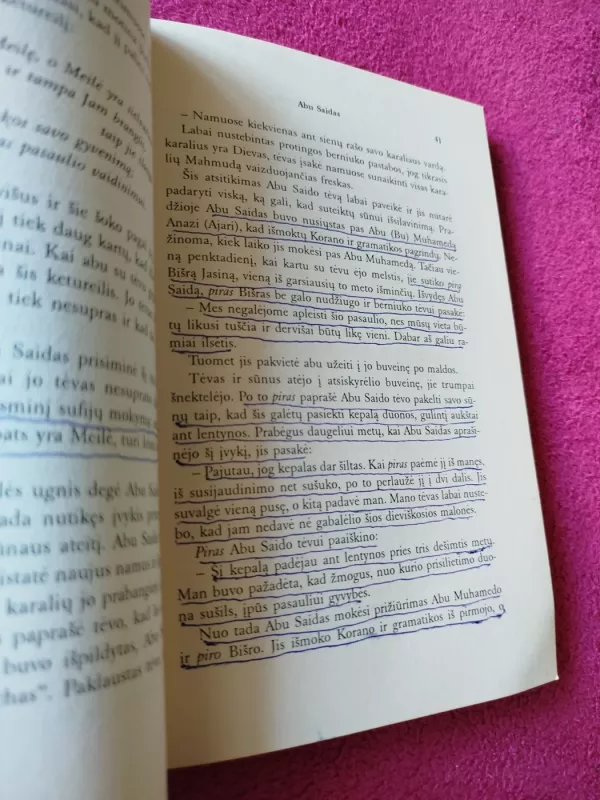 Meilę, o Meilė yra
ir tampa Jam
taip je
kos savo gyvenimą.
as pasaulio vaidinimo.
višus ir šie šoko
į tiek daug kartų, kad
nai. Kai abu su
a šis ketureilis. Jo
tiek nesupras ir kad
Saidas prisiminė
ai jo tėvas
sminį sufijų mokymą
pats yra Meilė, tun
lės ugnis degė Abu
ada nutikęs įvykis
ūnaus ateitį. Abu
statė naujus namus
karalių jo
paprašė tėvo, kad
buvo išpildytas,
has". Paklaustas
Abu Saidas
41
– Namuose kiekvienas ant sienų rašo savo karaliaus vardą.
Labai nustebintas protingos berniuko pastabos, jog tikrasis
karalius yra Dievas, tėvas įsakė namuose sunaikinti visas kara-
lių Mahmudą vaizduojančias freskas.
Šis atsitikimas Abu Saido tėvą labai paveikė ir jis nutarė
padaryti viską, ką gali, kad suteiktų sūnui išsilavinimą. Pra-
džioje Abu Saidas buvo nusiųstas pas Abu (Bu) Muhamedą
Anazi (Ajari), kad išmoktų Korano ir gramatikos pagrindų. Ne-
žinoma, kiek laiko jis mokėsi pas Abu Muhamedą. Tačiau vie-
ną penktadienį, kai kartu su tėvu ėjo melstis, jie sutiko pirą
Bišrą Jasiną, vieną iš garsiausių to meto išminčių. Išvydęs Abu
Saidą, piras Bišras be galo nudžiugo ir berniuko tėvui pasakė:
– Mes negalėjome apleisti šio pasaulio, nes mūsų vieta bū-
tų likusi tuščia ir dervišai būtų likę vieni. Dabar aš galiu ra-
miai ilsėtis.
Tuomet jis pakvietė abu užeiti į jo buveinę po maldos.
Tėvas ir sūnus atėjo į atsiskyrėlio buveinę, jie trumpai
šnektelėjo. Po to piras paprašė Abu Saido tėvo pakelti savo sū-
nų taip, kad šis galėtų pasiekti kepalą duonos, gulintį aukštai
ant lentynos. Prabėgus daugeliui metų, kai Abu Saidas apraši-
nėjo šį įvykį, jis pasakė:
– Pajutau, jog kepalas dar šiltas. Kai piras paėmė jį iš manęs,
iš susijaudinimo net sušuko, po to perlaužė jį į dvi dalis. Jis
suvalgė vieną pusę, o kitą padavė man. Mano tėvas labai nuste-
bo, kad jam nedavė nė gabalėlio šios dieviškosios malonės.
Piras Abu Saido tėvui paaiškino:
– Šį kepalą padėjau ant lentynos prieš tris dešimtis metų.
Man buvo pažadėta, kad žmogus, nuo kurio prisilietimo duo-
na sušils, įpūs pasauliui gyvybės.
Nuo tada Abu Saidas mokėsi prižiūrimas Abu Muhamedo
ir piro Bišro. Jis išmoko Korano ir gramatikos iš pirmojo, o